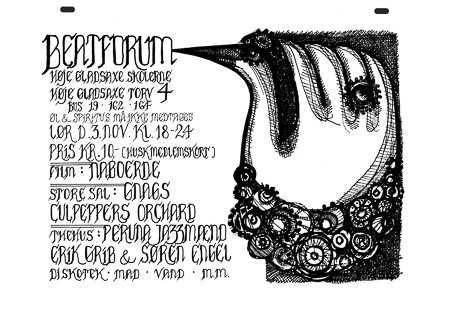 BEATFORUM
HØJE GLADSAXE SKOLERNE
HØJE GLADSAXE TORV 4
BUS 19 · 162 · 164
ØL & SPIRITUS MÅ IKKE MEDTAGES
LØR D. 3. NOV. KL. 18-24
PRIS KR. 10.- (HUSK MEDLEMSKORT)
FILM: NABOERNE
STORE SAL: GNAGS
CULPEPPERS ORCHARD
THEHUS: PERUNA JAZZMÆND
ERIK GRIB & SØREN ENGEL
DISKOTEK · MAD · VAND · M.M.